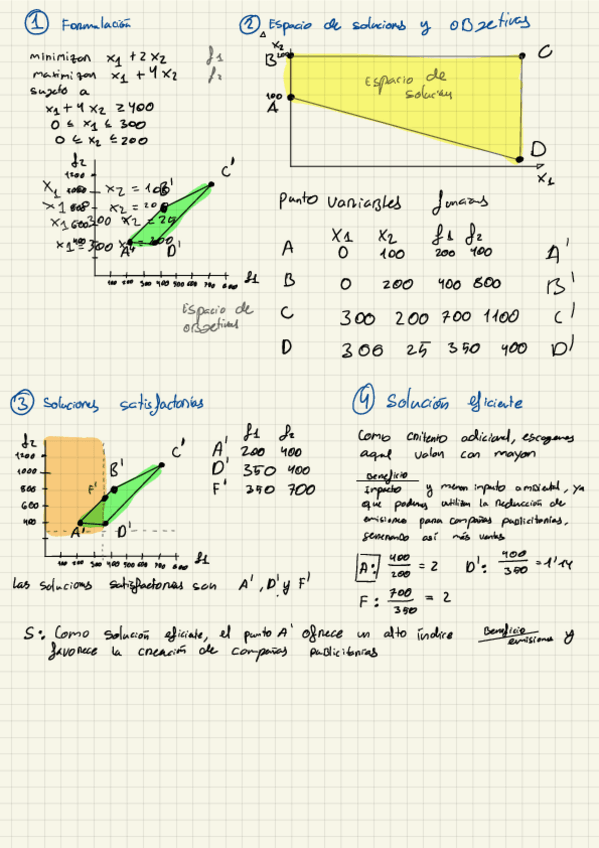 1 Formulación
minimizar x1 + 2x2 f1
maximizar x1 + 4x2 f2
sujeto a
x1 + 4x2 ≥ 400
0 ≤ x1 ≤ 300
0 ≤ x2 ≤ 200
f2
1200
1000
800
600
400
x1 x2 = 100
x1 x2 = 200
x1 = 300 x2 = 25
x1 = 300 x2 = 200
A' B' C' D'
100 200 300 400 500 600 700 800 f1
Espacio de
objetivos
2 Espacio de soluciones y objetivos
x2
B 200 C
100
A
Espacio de
solución
D
x1
Punto Variables funciones
x1 x2 f1 f2
A 0 100 200 400 A'
B 0 200 400 800 B'
C 300 200 700 1100 C'
D 300 25 350 400 D'
3 Soluciones satisfactorias
f2
1200
1000
800
600
400
A' B' C' D' F'
100 200 300 400 500 600 700 800 f1
f1 f2
A' 200 400
D' 350 400
F' 350 700
las soluciones satisfactorias son A', D' y F'
4 Solución eficiente
Como criterio adicional, escogemos
aquel valor con mayor
Beneficio
Impacto y menor impacto ambiental, ya
que podemos utilizar la reducción de
emisiones para compañas publicitarias,
generando así más ventas
A: 400/200 = 2 D': 400/350 = 1'14
F: 700/350 = 2
S: Como solución eficiente, el punto A' ofrece un alto índice Beneficio/emisiones y
favorece la creación de compañas publicitarias